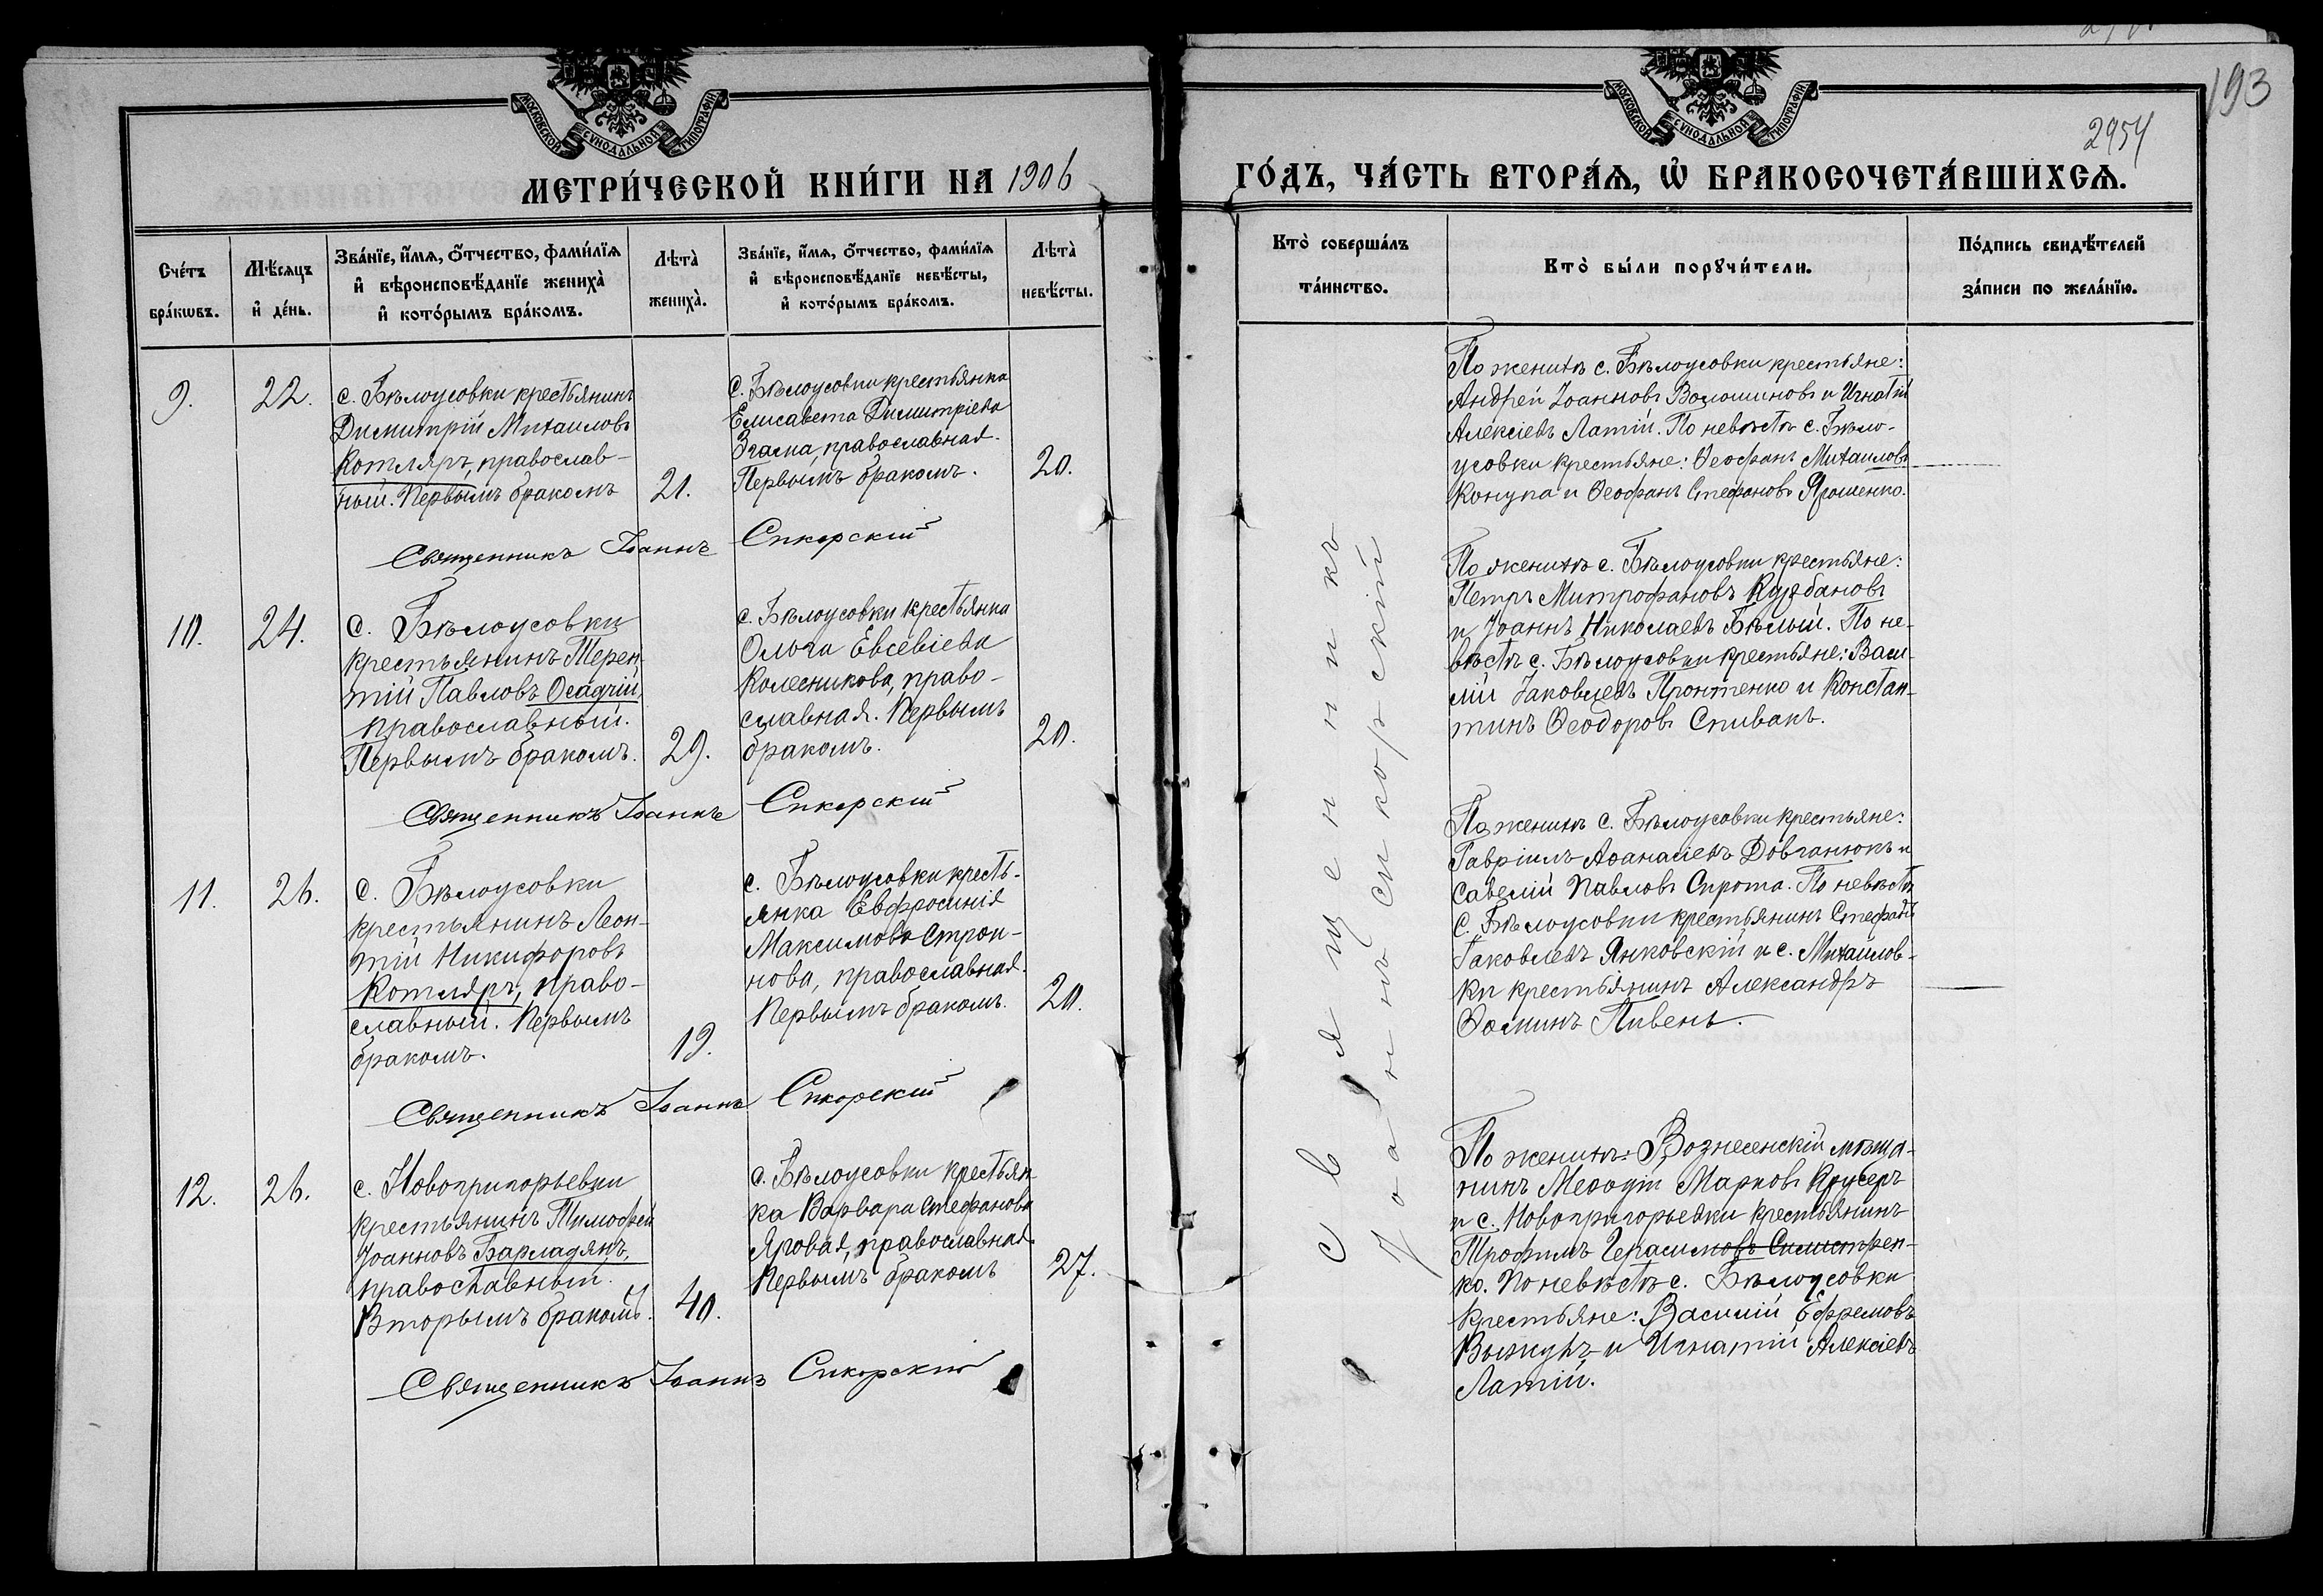 193
2954
МОСКОВСКОЙ СѴНОДАЛЬНОЙ ТИПОГРАФІИ
МЕТРИ́ЧЕСКОЙ КНИ́ГИ НА 1906
МОСКОВСКОЙ СѴНОДАЛЬНОЙ ТИПОГРАФІИ
ГО́ДЪ, ЧА́СТЬ ВТОРА́Ѧ, Ѽ БРАКОСОЧЕТА́ВШИХСѦ.
Сче́тъ
бра́кѡвъ.
Мѣ́сѧцъ
и҆ де́нь.
Зва́нїе, и҆́мѧ, ѻ҆́тчество, фами́лїѧ
и҆ вѣроисповѣ́данїе жениха̀
и҆ кото́рымъ бра́комъ.
Лѣта̀
жениха̀.
Зва́нїе, и҆́мѧ, ѻ҆́тчество, фами́лїѧ
и҆ вѣроисповѣ́данїе невѣ́сты,
и҆ кото́рымъ бра́комъ.
Лѣта̀
невѣ́сты.
Кто̀ соверша́лъ
та́инство.
Кто̀ бы́ли порꙋчи́тели.
По́дпись свидѣ́телей
за́писи по жела́нїю.
9.
22.
с. Бѣлоусовки крестьянинъ
Димитрій Михаиловъ
Котляръ, православ-
ный. Первымъ бракомъ
21.
с. Бѣлоусовки крестьянка
Елисавета Димитріева
православная.
Первымъ бракомъ.
20.
По женихѣ с. Бѣлоусовки крестьяне:
Андрей Іоанновъ Волошиновъ и Игнатій
Алексіевъ Латій. По невѣстѣ с. Бѣло-
усовки крестьяне: Ѳеофанъ Михаиловъ
Конупа и Ѳеофанъ Стефановъ Ярошенко.
Священникъ Іоаннъ Сикорскій
10.
24.
с. Бѣлоусовки
крестьянинъ Терен-
тій Павловъ Осадчій,
православный.
Первымъ бракомъ.
29.
с. Бѣлоусовки крестьянка
Ольга Евсевіева
Колесникова, право-
славная. Первымъ
бракомъ.
20.
По женихѣ с. Бѣлоусовки крестьяне:
Петръ Митрофановъ Курбановъ
и Іоаннъ Николаевъ Бѣлый. По не-
вѣстѣ с. Бѣлоусовки крестьяне: Васи-
лій Іаковлевъ Пронтенко и Констан-
тинъ Ѳеодоровъ Спивакъ.
Священникъ Іоаннъ Сикорскій
Священникъ
Іоаннъ Сикорскій
11.
26.
с. Бѣлоусовки
крестьянинъ Леон-
тій Никифоровъ
Котляръ, право-
славный. Первымъ
бракомъ.
19.
с. Бѣлоусовки кресть-
янка Евфросинія
Максимова Строи-
нова, православная.
Первымъ бракомъ.
20.
По женихѣ с. Бѣлоусовки крестьяне:
Гавріилъ Аѳанасіевъ Довганюкъ и
Савелій Павловъ Сирота. По невѣстѣ
с. Бѣлоусовки крестьянинъ Стефанъ
Іаковлевъ Янковскій и с. Михаилов-
ки крестьянинъ Александръ
Ѳоминъ Пивень.
Священникъ Іоаннъ Сикорскій
12.
26.
с. Новогригорьевки
крестьянинъ Тимофей
Іоанновъ Барладянъ,
православный.
Вторымъ бракомъ.
40.
с. Бѣлоусовки крестьян-
ка Варвара Стефанова
Яровая, православная.
Первымъ бракомъ
27.
По женихѣ: Вознесенскій мѣща-
нинъ Меѳодій Марковъ Крусеръ
и с. Новогригорьевки крестьянинъ
Трофимъ Герасимовъ Силистрен-
ко. По невѣстѣ с. Бѣлоусовки
крестьяне: Василій Ефремовъ
Выжуръ и Игнатій Алексіевъ
Латій.
Священникъ Іоаннъ Сикорскій